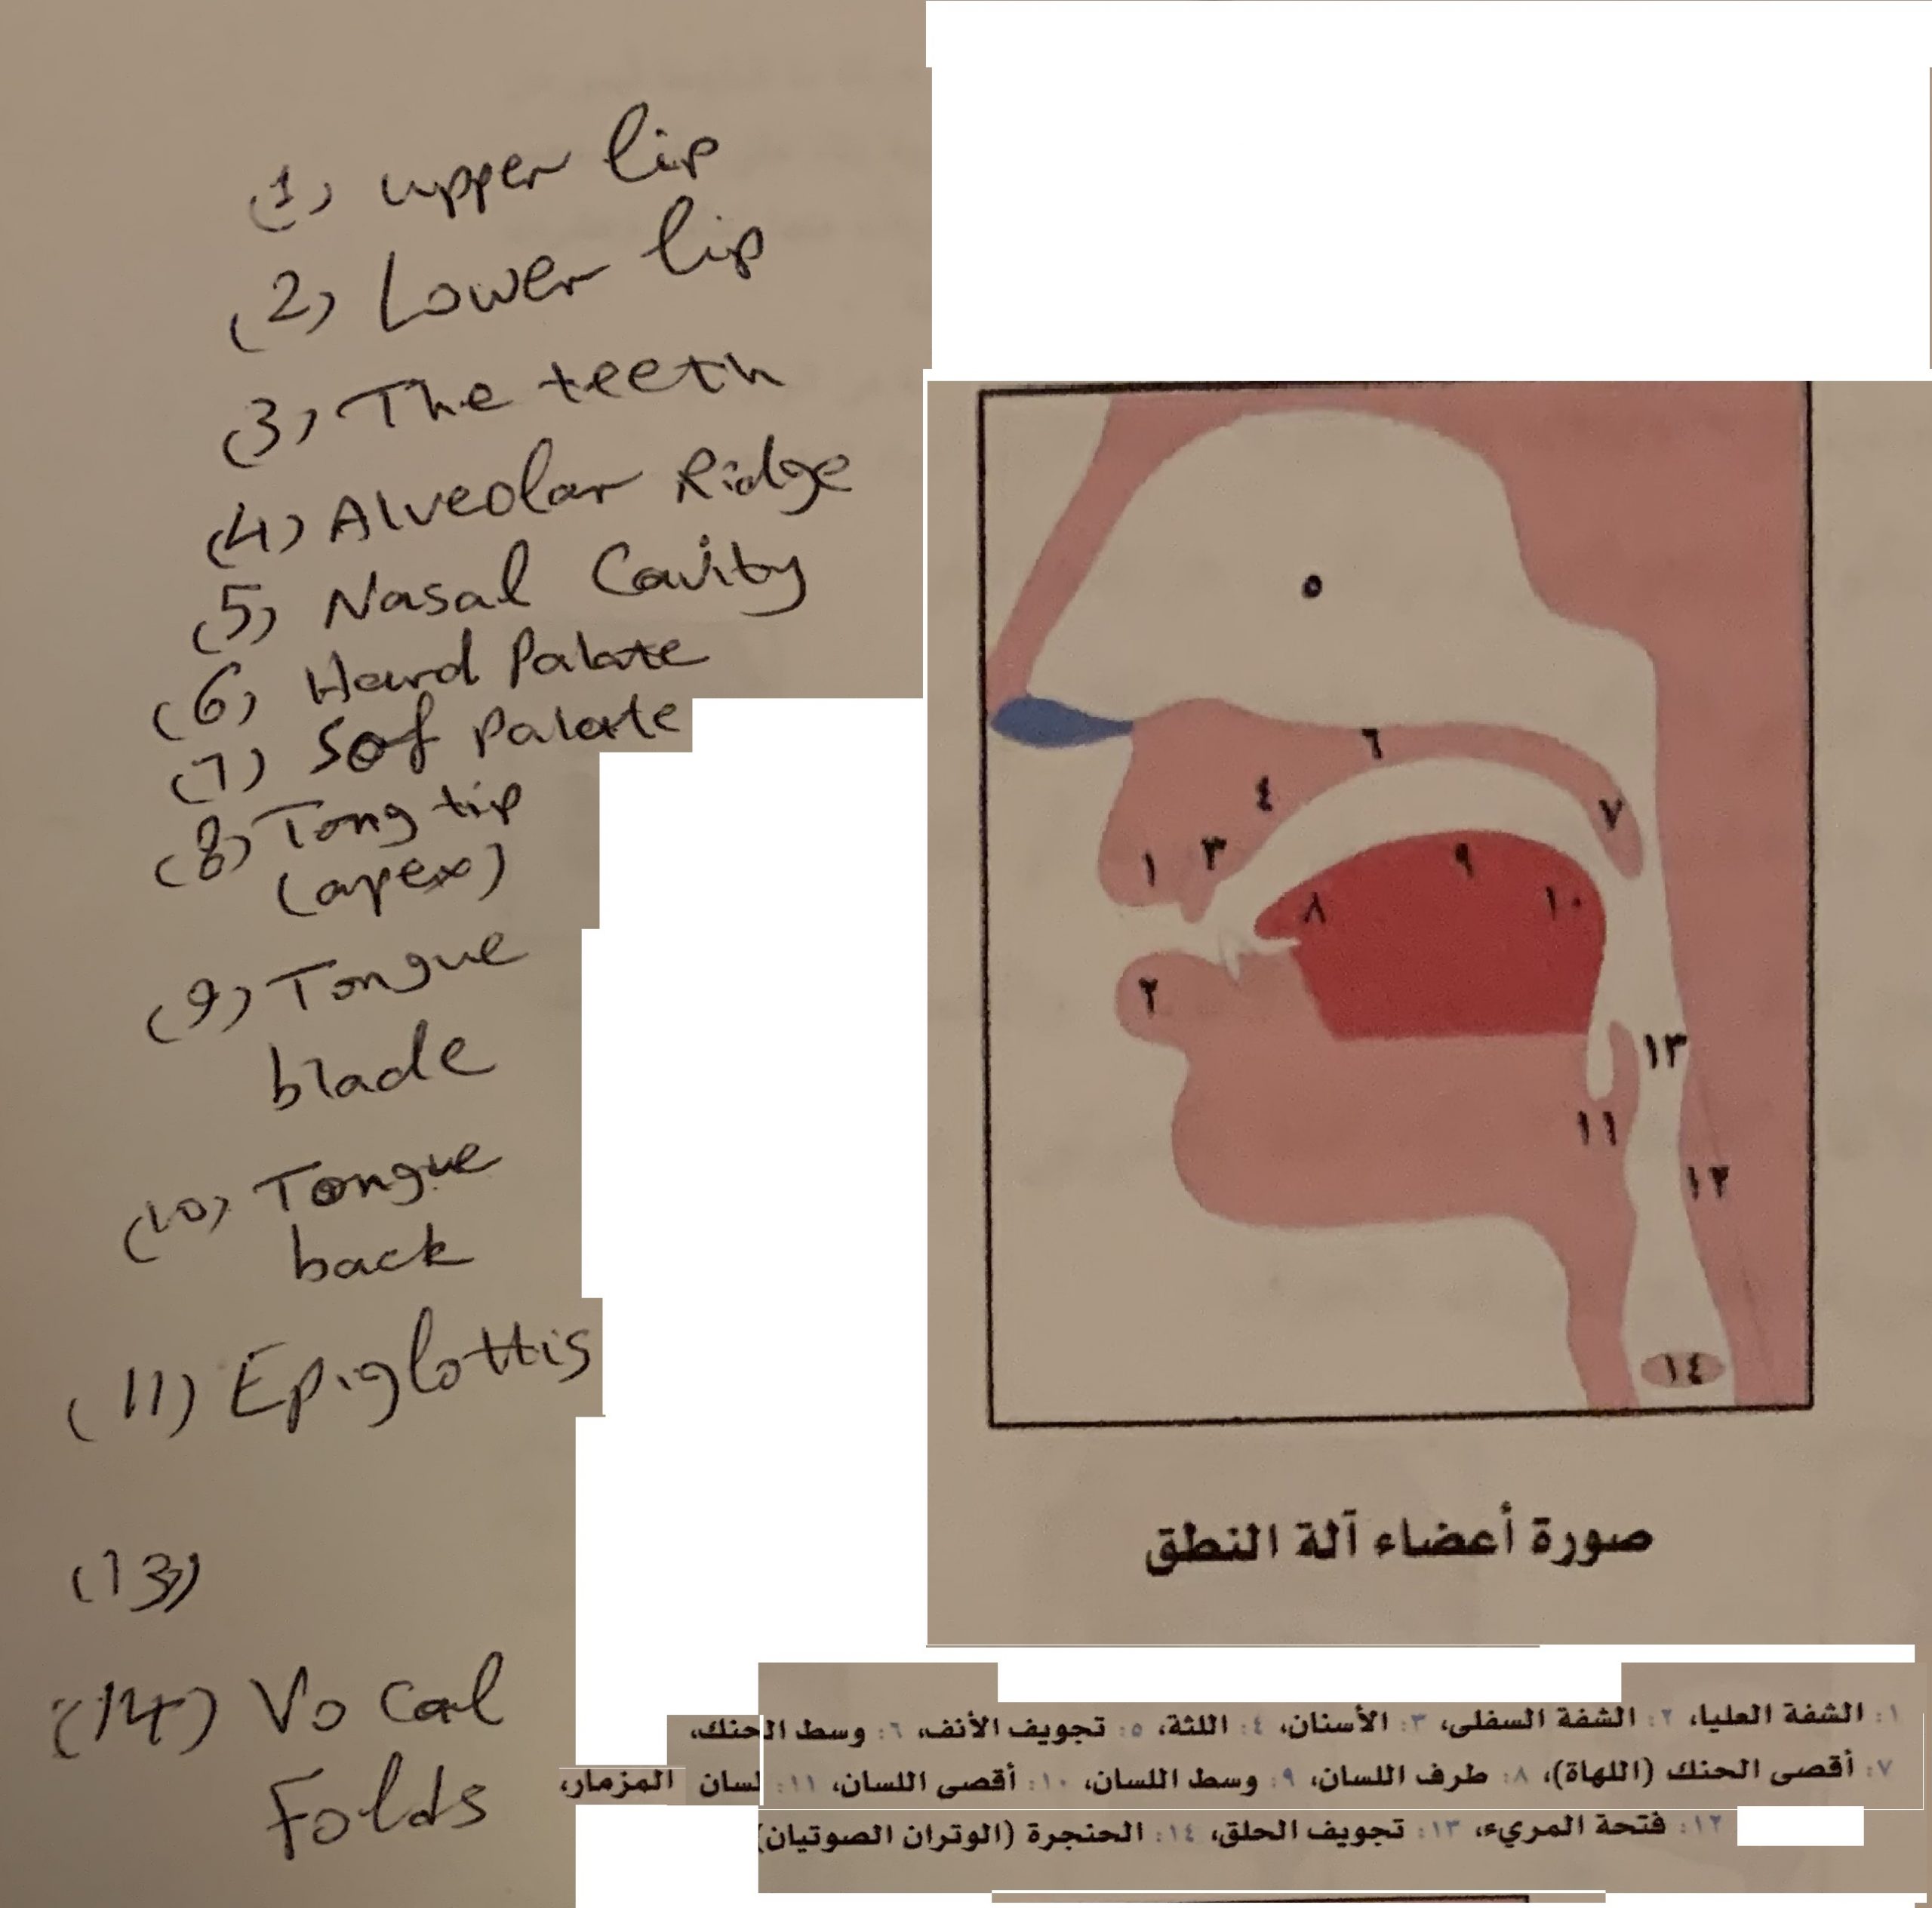 (1) upper lip
(2) Lower lip
(3) The teeth
(4) Alveolar Ridge
(5) Nasal Cavity
(6) Hard Palate
(7) Sof Palate
(8) Tong tip
(apex)
(9) Tongue
blade
(10) Tongue
back
(11) Epiglottis
(13)
(14) Vocal
Folds
٥
٦
٤
٧
٣
١
٩
٨
١٠
٢
١٣
١١
١٢
١٤
صورة أعضاء آلة النطق
١: الشفة العليا، ٢: الشفة السفلى، ٣: الأسنان، ٤: اللثة، ٥: تجويف الأنف، ٦: وسط الحنك،
٧: أقصى الحنك (اللهاة)، ٨: طرف اللسان، ٩: وسط اللسان، ١٠: أقصى اللسان، ١١: لسان المزمار،
١٢: فتحة المريء، ١٣: تجويف الحلق، ١٤: الحنجرة (الوتران الصوتيان)